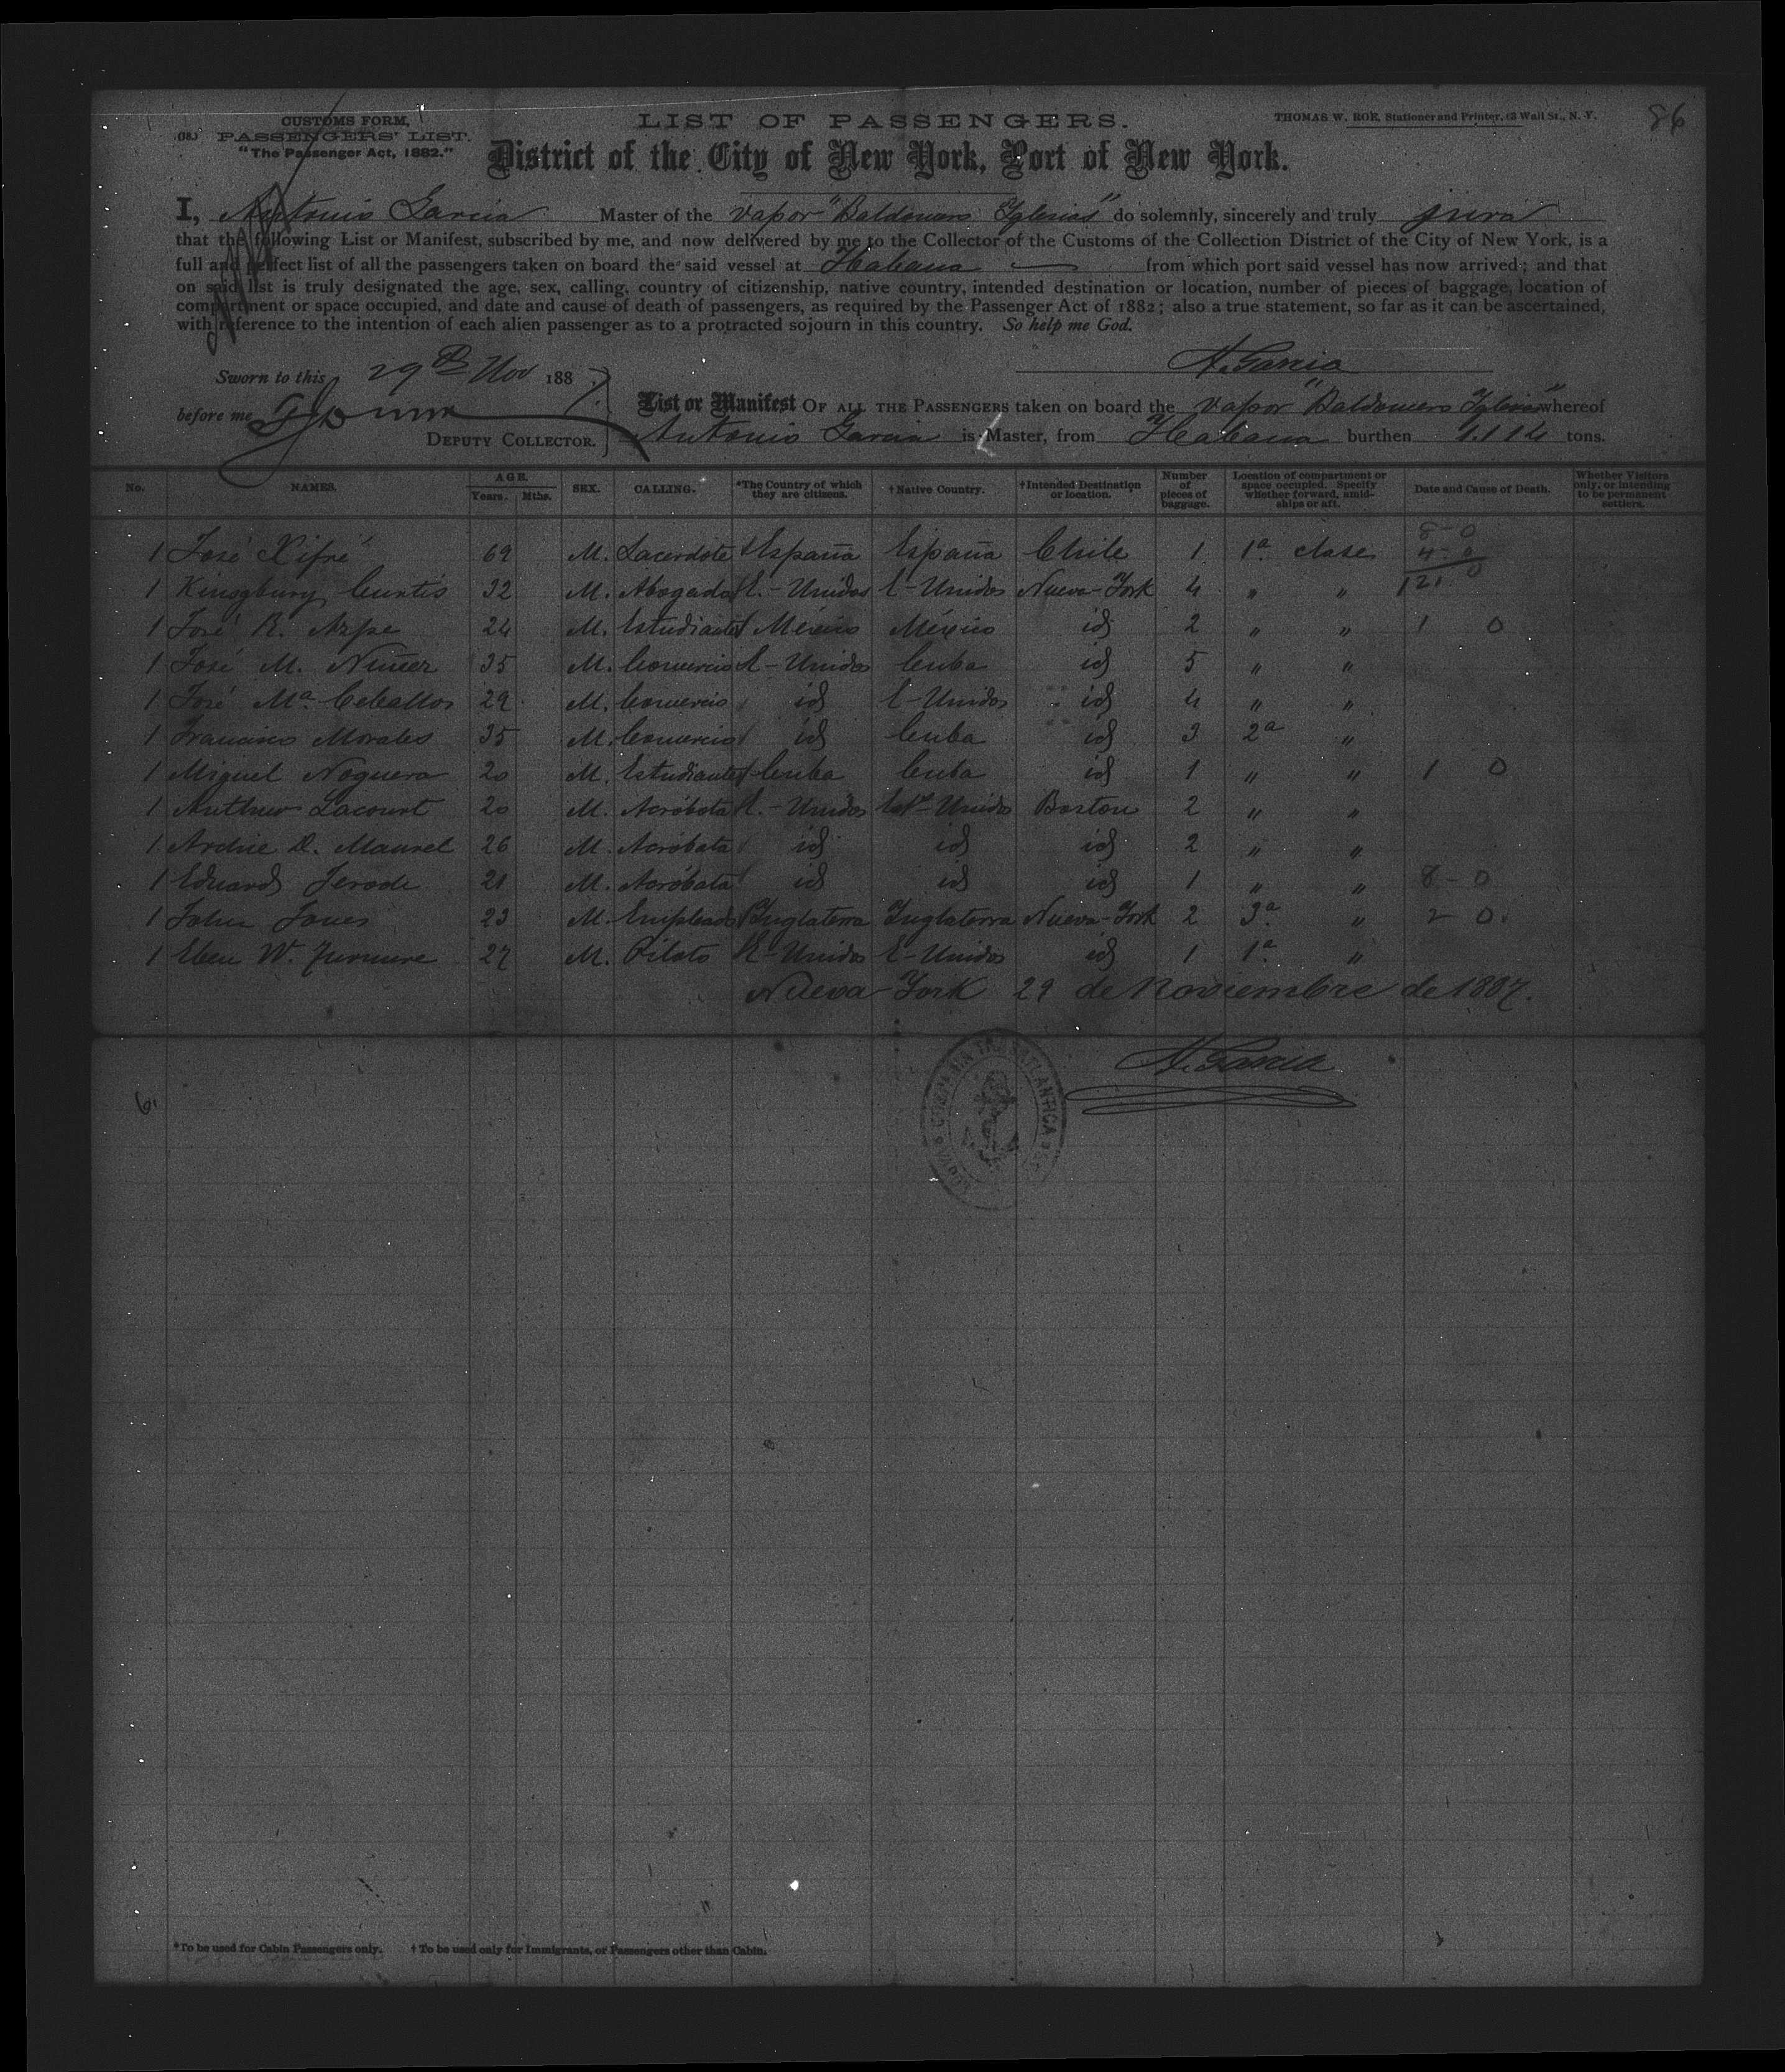 CUSTOMS FORM,
(18.) PASSENGERS' LIST.
"The Passenger Act, 1882."
LIST OF PASSENGERS.
THOMAS W. ROE, Stationer and Printer, 62 Wall St., N. Y.
86
District of the City of New York, Port of New York.
I, Antonio Garcia Master of the vapor "Baldomero Yglesias" do solemnly, sincerely and truly jura
that the following List or Manifest, subscribed by me, and now delivered by me to the Collector of the Customs of the Collection District of the City of New York, is a
full and perfect list of all the passengers taken on board the said vessel at Habana from which port said vessel has now arrived; and that
on said list is truly designated the age, sex, calling, country of citizenship, native country, intended destination or location, number of pieces of baggage, location of
compartment or space occupied, and date and cause of death of passengers, as required by the Passenger Act of 1882; also a true statement, so far as it can be ascertained,
with reference to the intention of each alien passenger as to a protracted sojourn in this country. So help me God.
A. Garcia
Sworn to this 29th Nov 1887
before me
DEPUTY COLLECTOR.
List or Manifest OF ALL THE PASSENGERS taken on board the vapor "Baldomero Yglesias" whereof
Antonio Garcia is Master, from Habana burthen 1.114 tons.
No. NAMES. AGE. Years. Mths. SEX. CALLING. *The Country of which they are citizens. †Native Country. †Intended Destination or location. Number of pieces of baggage. Location of compartment or space occupied. Specify whether forward, amidships or aft. Date and Cause of Death. Whether Visitors only, or intending to be permanent settlers.
8-0
1 José Xifré 69 M. Sacerdote España España Chile 1 1a clase 4-0
1 Kingsbury Curtis 32 M. Abogado E.-Unidos E-Unidos Nueva-York 4 " " 12 0
1 José R. Azpe 24 M. Estudiante México México id 2 " " 1 0
1 José M. Nuñez 35 M. Comercio E-Unidos Cuba id 5 " "
1 José Ma Ceballos 29 M. Comercio id E-Unidos id 4 " "
1 Francisco Morales 35 M. Comercio id Cuba id 3 2a "
1 Miguel Noguera 20 M. Estudiante Cuba Cuba id 1 " " 1 0
1 Authur Lacourt 20 M. Acróbata E.-Unidos Est-Unidos Boston 2 " "
1 Archie D. Maurel 26 M. Acróbata id id id 2 " "
1 Eduard Jerode 21 M. Acróbata id id id 1 " " 8-0
1 John Jones 23 M. Empleado Inglaterra Inglaterra Nueva-York 2 3a " 2 0
1 Eben W. 27 M. Piloto E-Unidos E-Unidos id 1 1a "
Nueva-York 29 de Noviembre de 1887.
A. Garcia
COMPAÑIA TRASATLANTICA
VAPOR
6
*To be used for Cabin Passengers only. † To be used only for Immigrants, or Passengers other than Cabin.